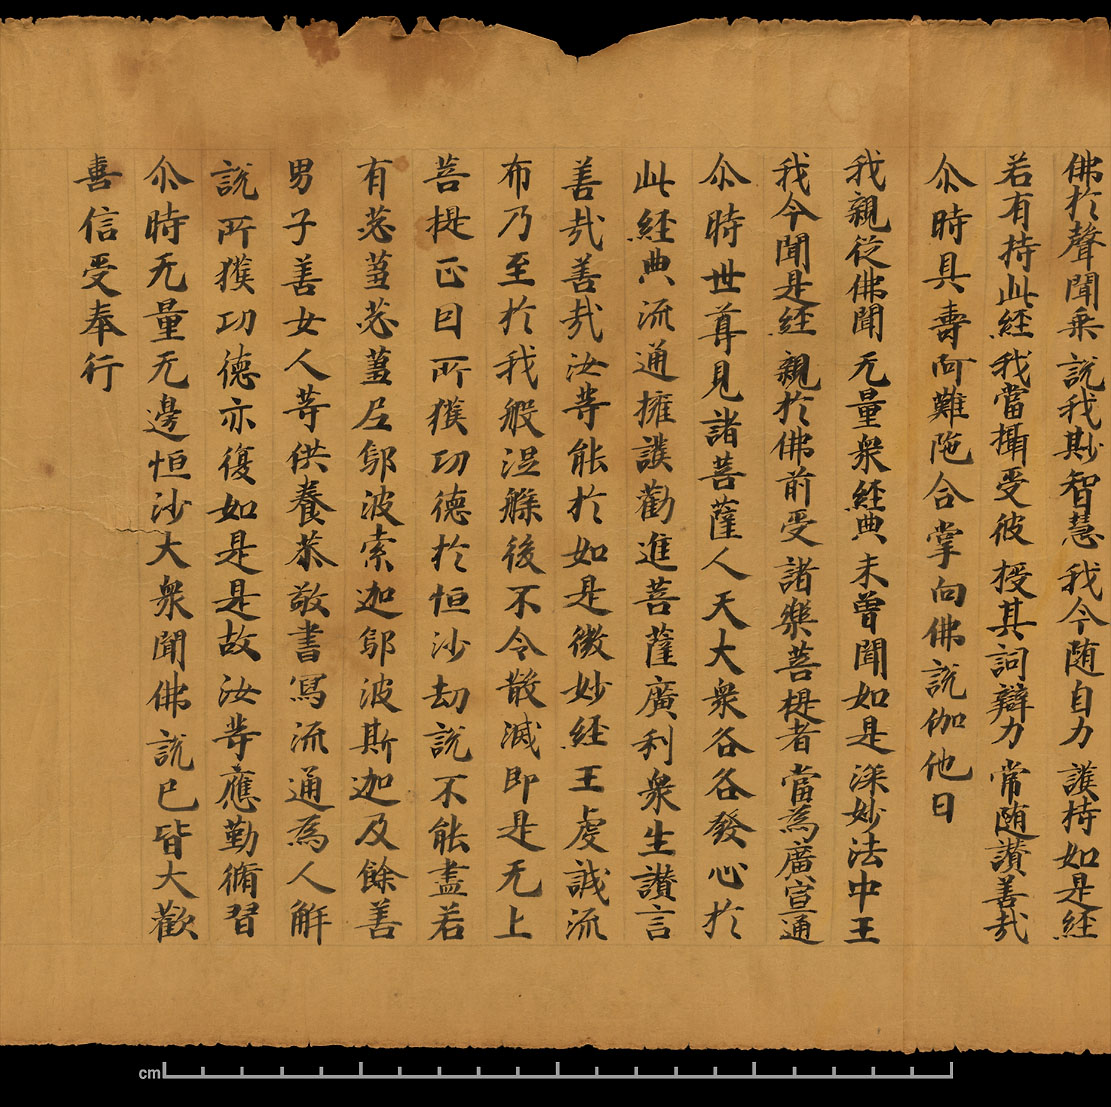 佛於聲聞乘 說我尠智慧 我今随自力 護持如是經
若有持此經 我當攝受彼 授其詞辯力 常随讃善哉
尒時具壽阿難陁合掌向佛說伽他曰
我親從佛聞 无量衆經典 未曾聞如是 深妙法中王
我今聞是經 親於佛前受 諸樂菩提者 當為廣宣通
尒時世尊見諸菩薩人天大衆各各發心於
此經典流通擁護勸進菩薩廣利衆生讃言
善哉善哉汝等能於如是微妙經王虔誠流
布乃至於我般涅槃後不令散滅即是无上
菩提正因所獲功德於恒沙劫說不能盡若
有苾蒭苾蒭尼鄔波索迦鄔波斯迦及餘善
男子善女人等供養恭敬書寫流通為人解
說所獲功德亦復如是是故汝等應勤脩習
尒時无量无邊恒沙大衆聞佛說已皆大歡
喜信受奉行
cm